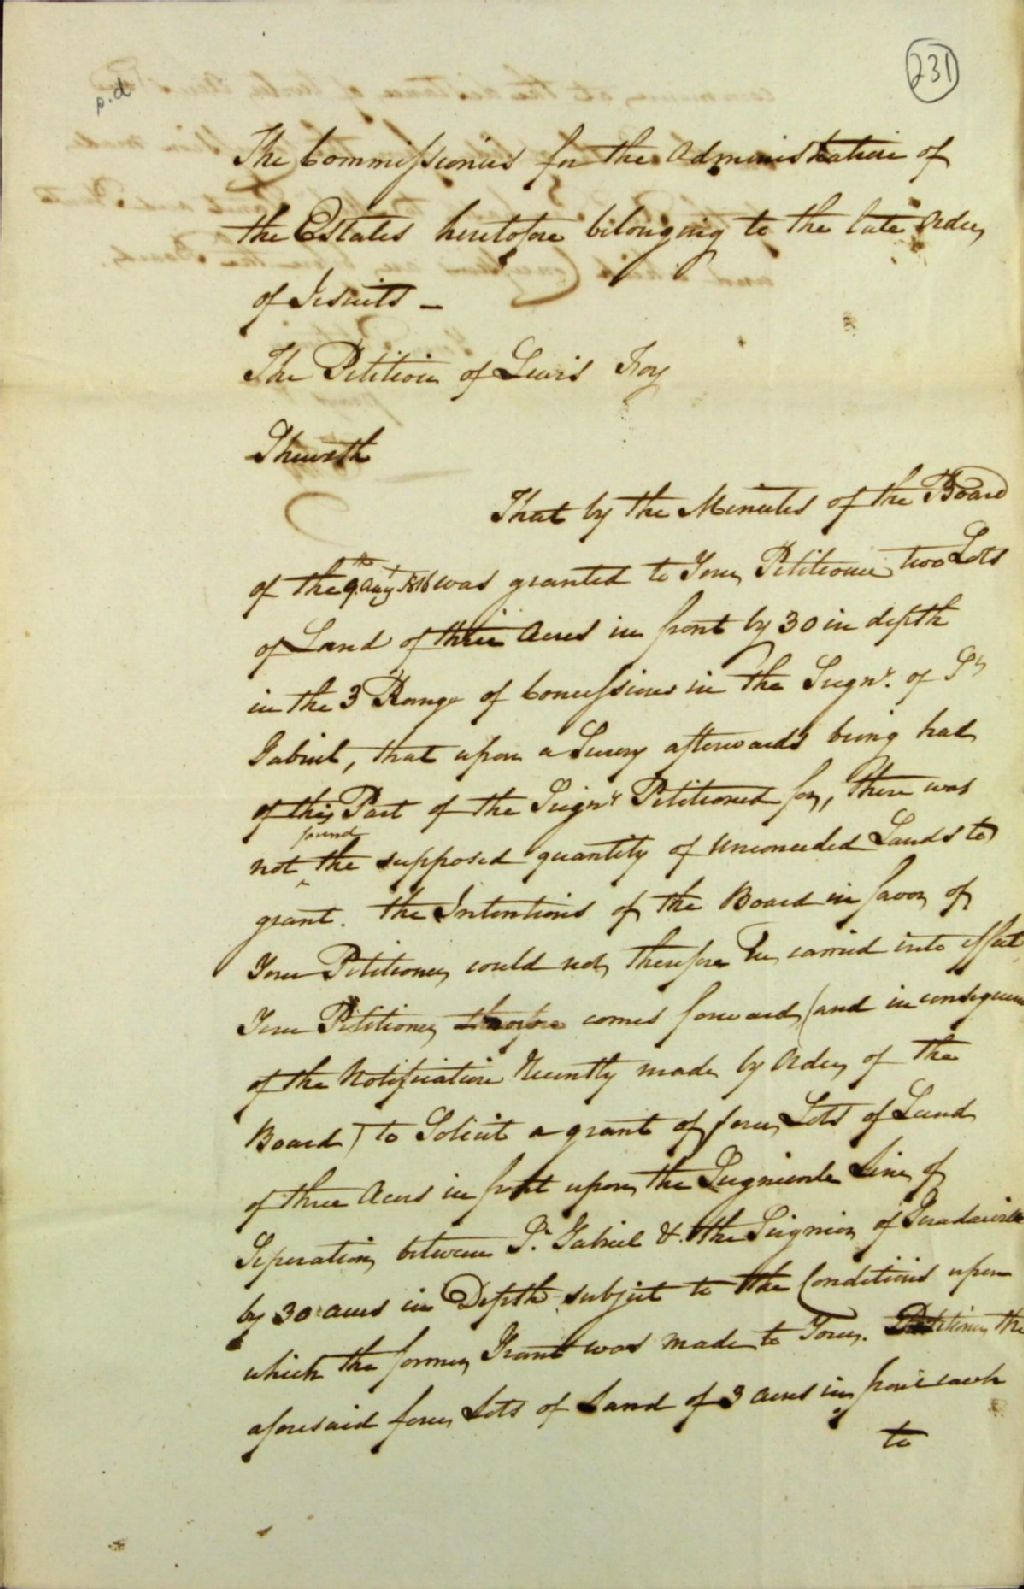 231
p.d
The Commissioners for the Administration of
the Estates heretofore belonging to the late Order
of Jesuits —
The Petition of Lewis Foy
Sheweth
That by the Minutes of the Board
of the 9th Augt 1816 was granted to Your Petitioner two Lots
of Land of three Acres in front by 30 in depth
in the 3 Range of Concessions in the Seignr. of St
Gabriel, that upon a Survey afterwards being had
of this Part of the Seignr Petitioned for, there was
not found the supposed quantity of unconceded Lands to
grant. the Intentions of the Board in favor of
Your Petitioner could not therefore be carried into effect
Your Petitioner therefore comes forward (and in consequence
of the Notification recently made by Order of the
Board) to Solicit a grant of four Lots of Land
of three Acres in front upon the Seigniorale Line of
Seperation between St. Gabriel & the Seignior of
by 30 acres in Depth subject to the Conditions upon
which the former Grant was made to Your Petitioner the
aforesaid four Lots of Land of 3 acres in front each
to